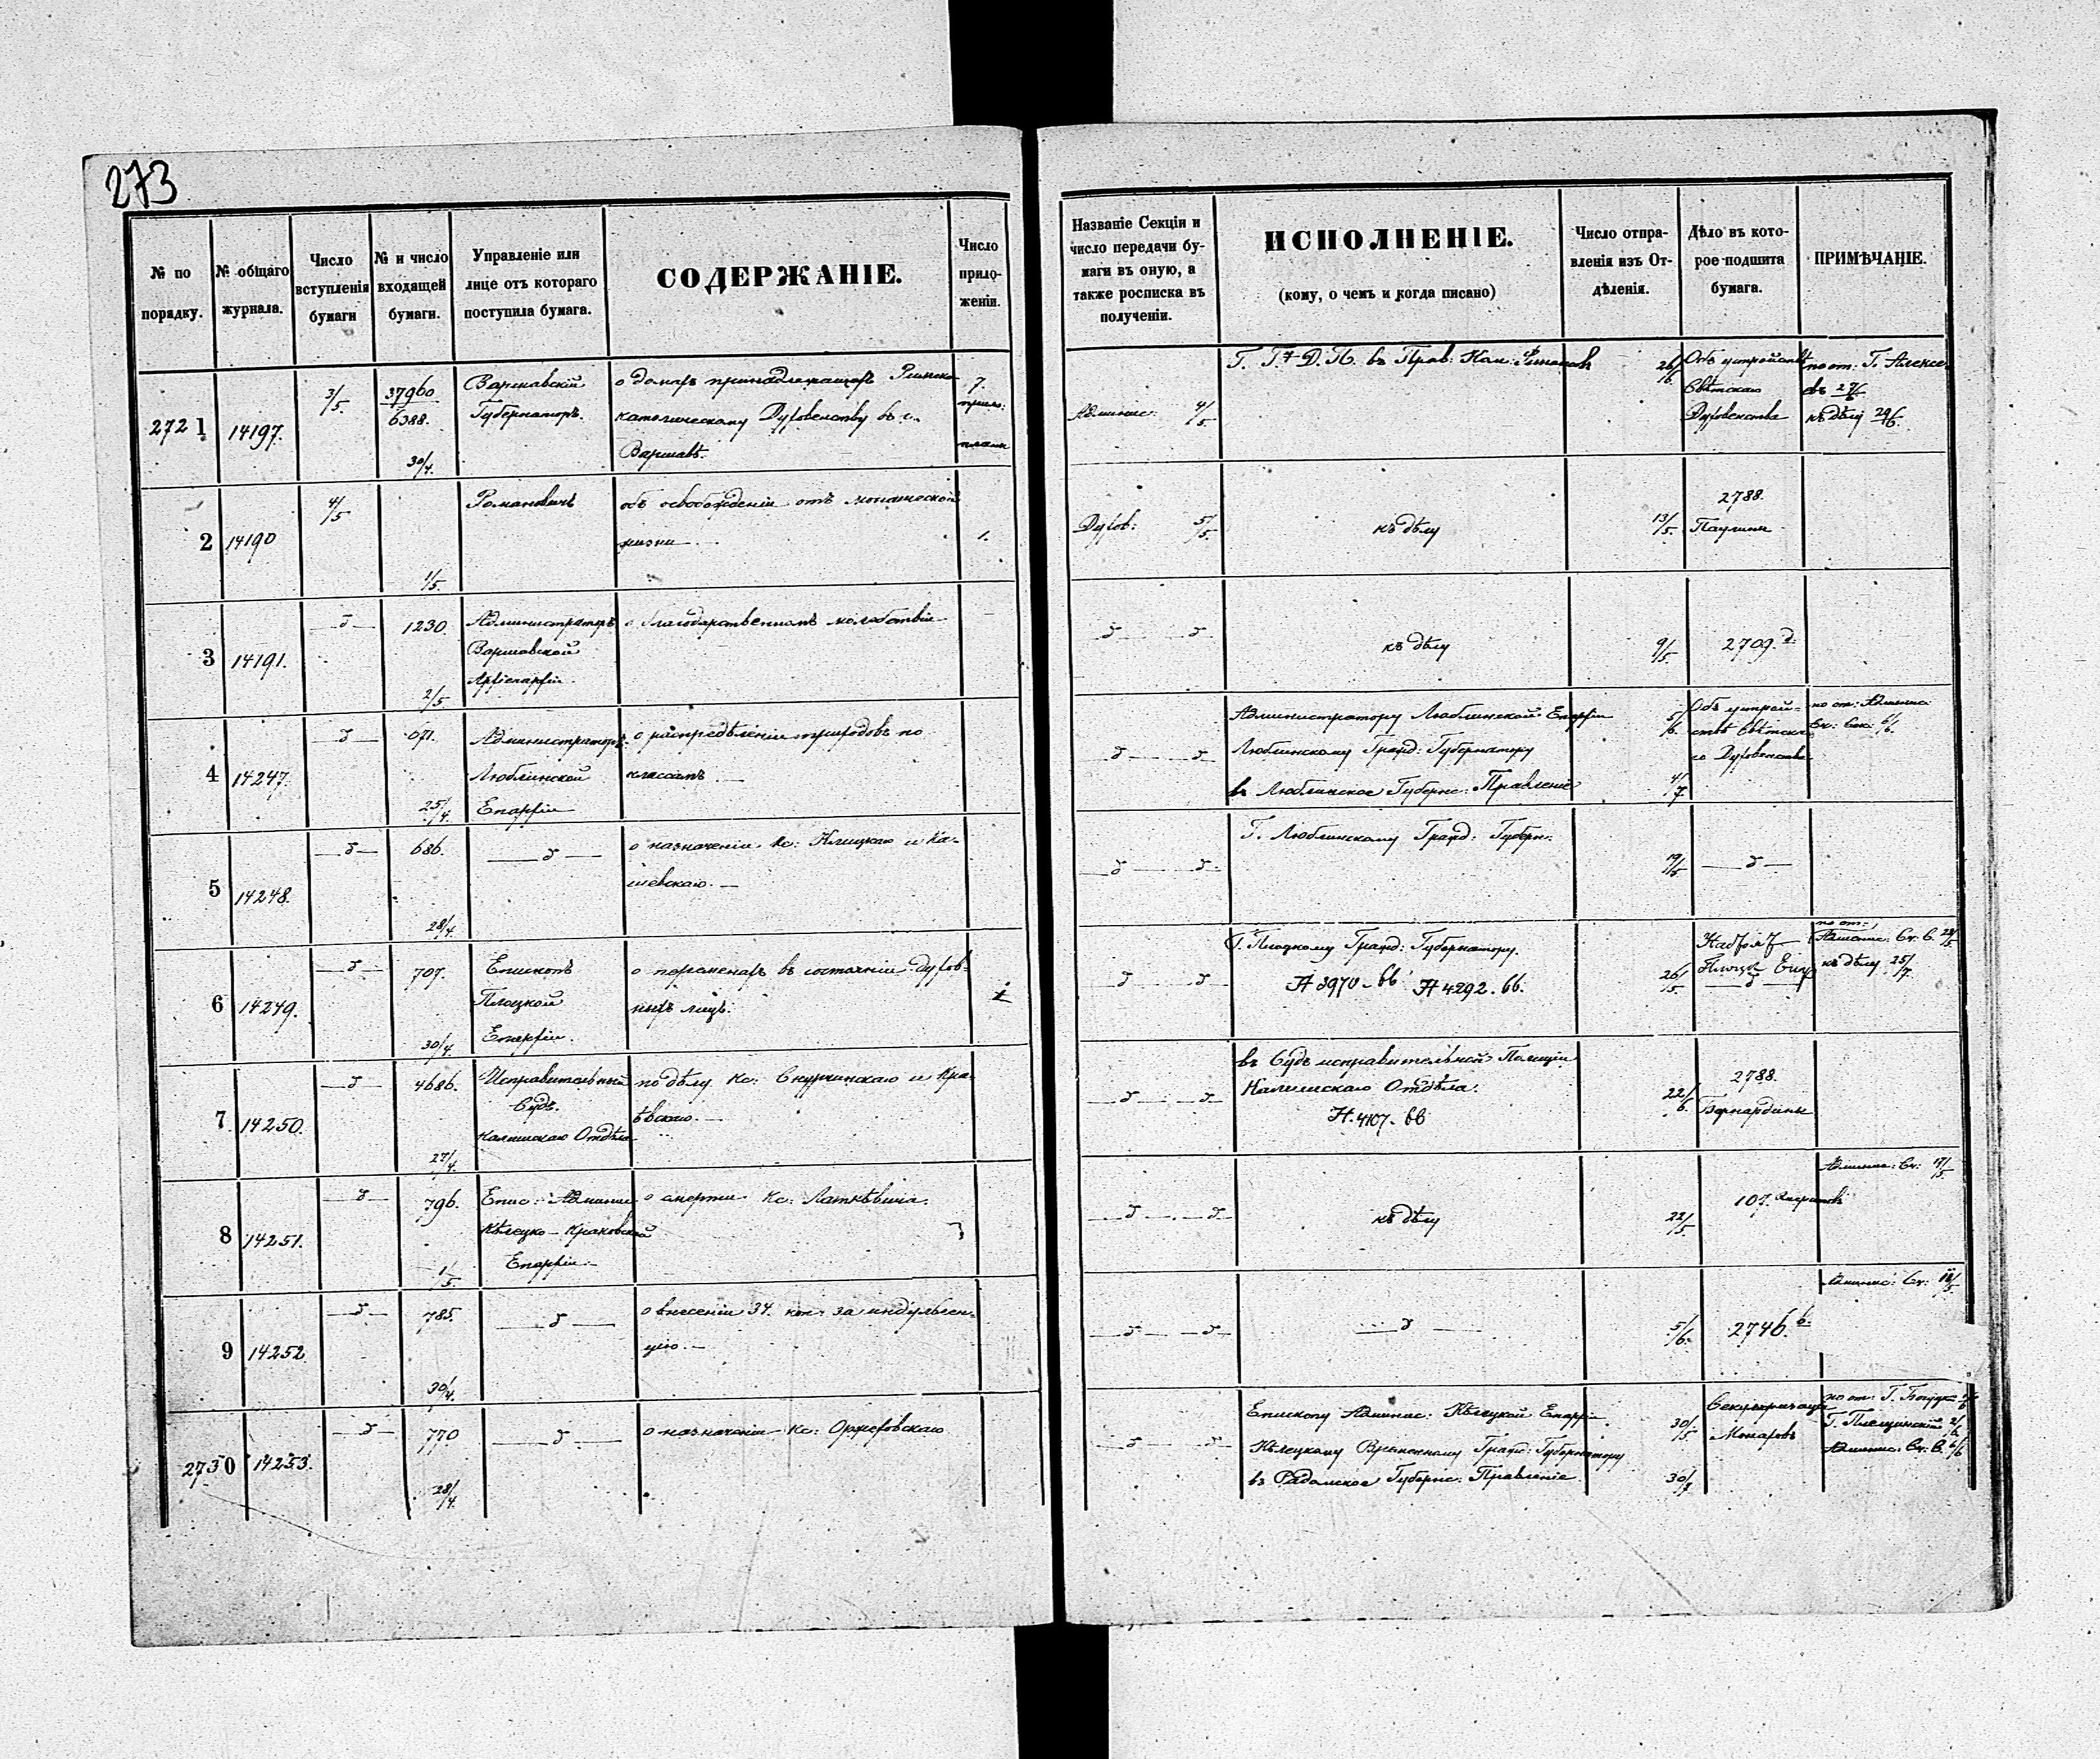 273
№ по порядку.
№ общаго журнала.
Число вступленія бумаги
№ и число входящей бумаги.
Управленіе или лице отъ котораго поступила бумага.
СОДЕРЖАНІЕ.
Число приложеніи.
Названіе Секціи и число передачи бумаги въ оную, а также росписка въ полученіи.
ИСПОЛНЕНІЕ.
(кому, о чемъ и когда писано)
Число отправленія изъ Отдѣленія.
Дѣло въ которое подшита бумага.
ПРИМѢЧАНІЕ.
2721
14197.
3/5.
37960
6388.
30/4.
Варшавскій
Губернаторъ.
о домахъ принадлежащихъ Римско
католическому Духовенству въ г.
Варшавѣ.
7.
прил:
планъ
Админис: 4/5
Г. Г. Д. П. въ Прав: Ком:
26/6.
Объ устройствѣ
Свѣтскаго
Духовенства
по от: Г. Алексѣ
евъ 27/6
къ дѣлу 29/6.
2
14190
4/5
1/5.
Романовичъ
объ освобожденіи отъ монашеской
жизни.
1.
Духов: 5/5.
къ дѣлу
13/5.
2788.
Паулины
3
14191.
— " —
1230.
2/5
Администраторъ
Варшавской
Архіепархіи.
о благодарственномъ молебствіи
къ дѣлу
9/5.
2709. д.
4
14247.
— " —
671.
25/4.
Администраторъ
Люблинской
Епархіи
о распредѣленіи приходовъ по
классамъ.
Администратору Люблинской Епархіи
Люблинскому Гражд: Губернатору
въ Люблинское Губернс: Правленіе
5/6.
4/7.
Объ устрой-
ствѣ Свѣтска
го Духовенства
по от: Админис:
Сч: Сек: 6/6.
5
14248.
— " —
686.
28/4.
— " —
о назначеніи Кс: Клицкаго и Ка-
шевскаго.
Г. Люблинскому Гражд: Губерн:
19/5
— " —
6
14249.
— " —
707.
30/4.
Епископъ
Плоцкой
Епархіи.
о перемѣнахъ въ состояніи духов-
ныхъ лицъ.
Г. Плоцкому Гражд: Губернатору.
№ 3970. 66 № 4292. 66.
26/5.
по от:
Админис: Сч. С. 28/5
къ дѣлу 25/7.
7
14250.
— " —
4686.
27/4.
Исправительный
Судъ.
Калишскаго Отдѣла
по дѣлу Кс: Скупчинскаго и Кра-
ѣвскаго.
въ Судъ исправительной Полиціи
Калишскаго Отдѣла.
№. 4107. 66
22/6.
2788.
Бернардины
8
14251.
— " —
796.
1/5.
Епис: Админис
Кѣлецко-Краковской
Епархіи
о смерти Кс: Латкѣвича.
къ дѣлу
22/5.
107.
Админис: Сч: 17/5
9
14252.
— " —
785.
30/4.
— " —
о внесеніи 34. коп: за индульген-
цію.
— " —
5/6.
2746. в.
Админис: Сч: 18/5
2730
14253.
— " —
770
28/4.
— " —
о назначеніи Кс: Оржеховскаго
Епископу Админис: Кѣлецкой Епархіи
Кѣлецкому Временному Гражд: Губернатору
въ Радомское Губернс: Правленіе
30/5
Секуляризація
Монаховъ
Админис: Сч. С. 6/6